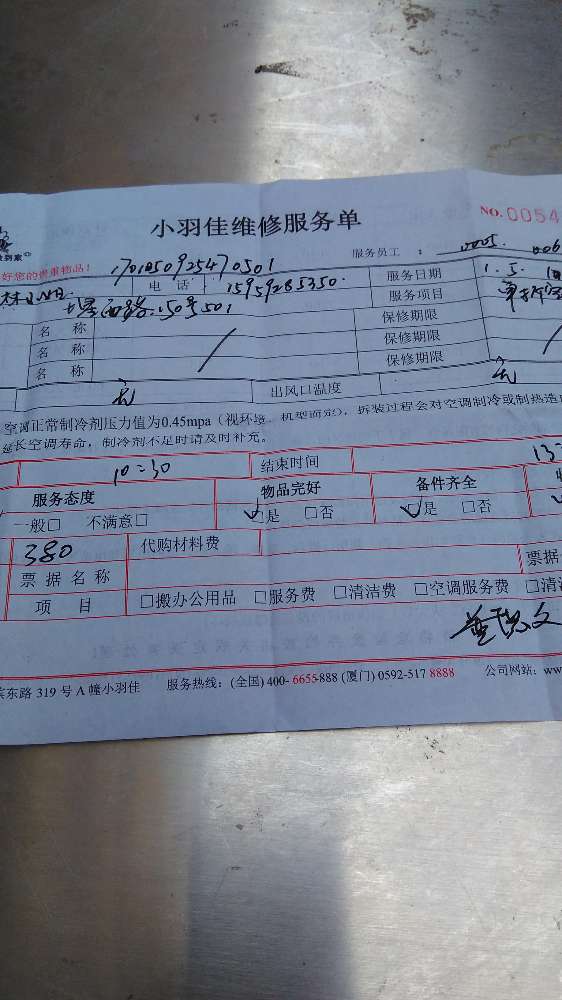 小羽佳维修服务单
NO.0054
好您的贵重物品! 1701050925470501 服务员工 : 0005. 006
电 话 15959285350. 服务日期 1.5.
150号501 服务项目
名 称 / 保修期限
名 称 保修期限
名 称 保修期限
无 出风口温度 无
空调正常制冷剂压力值为0.45mpa(视环境、机型而定),拆装过程会对空调制冷或制热造
延长空调寿命,制冷剂不足时请及时补充。
10:30 结束时间 13
服务态度 物品完好 备件齐全
一般□ 不满意□ ✓□是 □否 ✓□是 □否
380 代购材料费
票 据 名 称 票据
项 目 □搬办公用品 □服务费 □清洁费 □空调服务费 □清
滨东路 319 号 A 幢小羽佳 服务热线:(全国) 400-6655-888 (厦门) 0592-517 8888 公司网站:ww